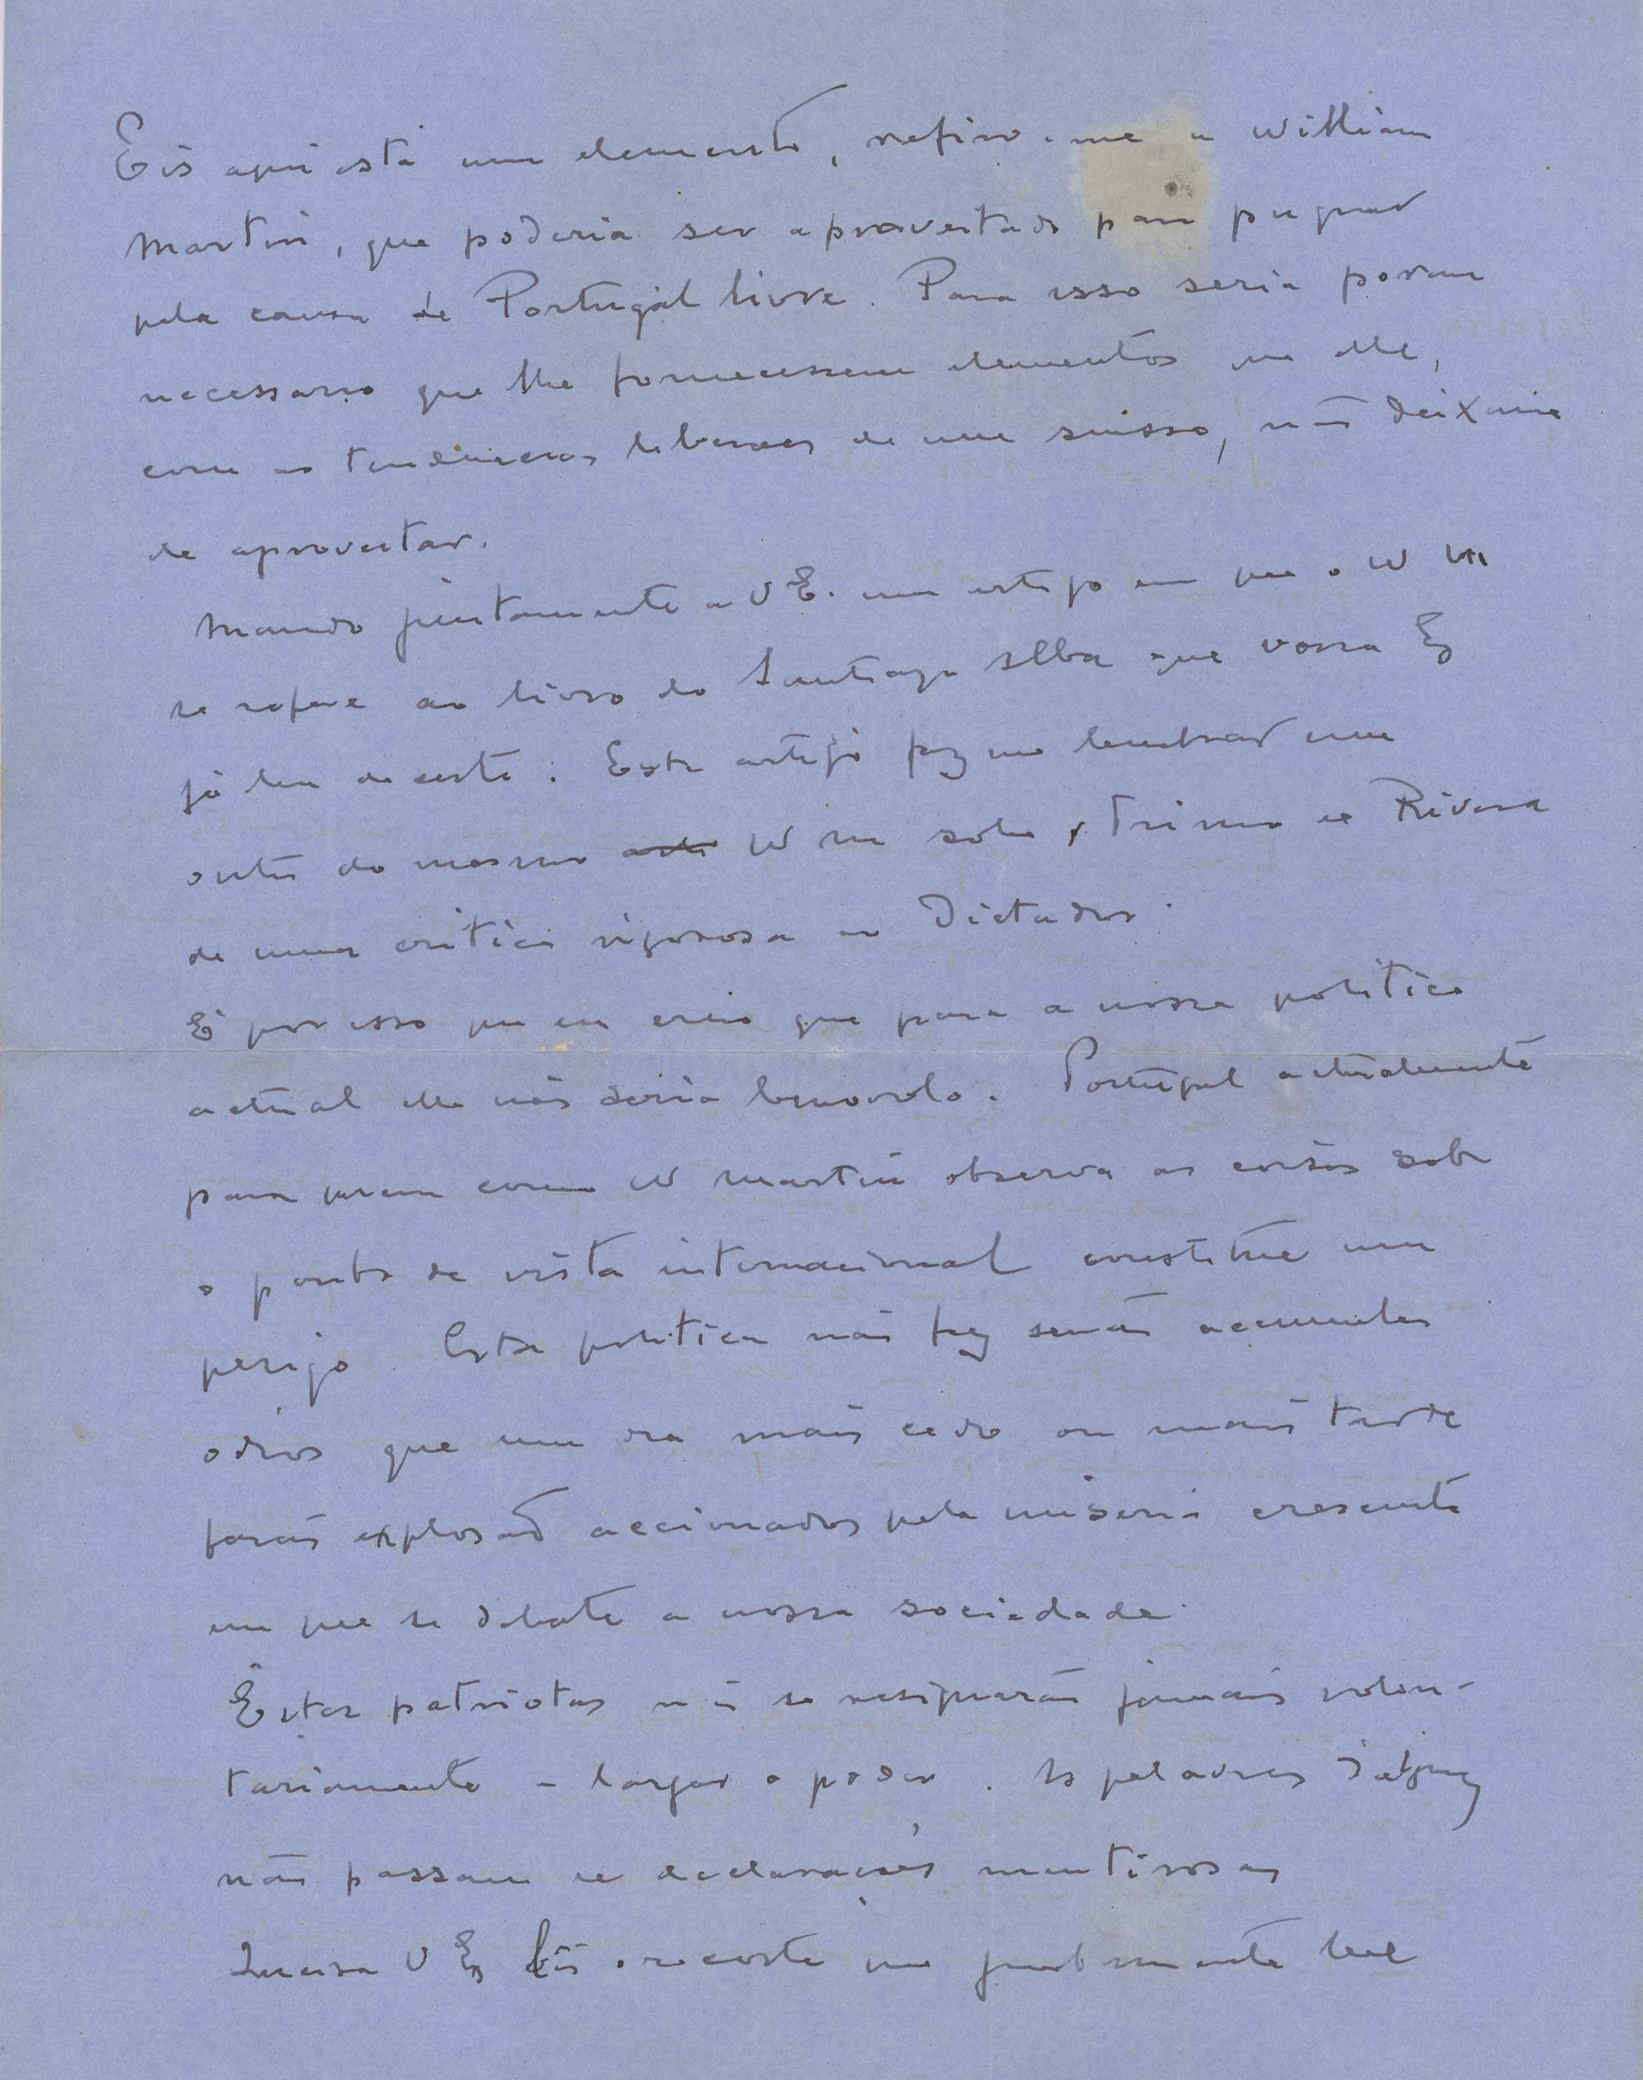 Eis aqui está um elemento, refiro-me a William
Martin, que poderia ser aproveitado para pugnar
pela causa de Portugal livre. Para isso seria porem
necessario que lhe fornecessem elementos que elle,
com as tendencias liberaes de um suisso, não deixaria
de aproveitar.
Mando juntamente a V E. um artigo em que o W M
se refere ao livro do Santiago Alba que vossa Ex
já leu de certo. Este artigo fez me lembrar um
outro do mesmo W M sobre Primo de Rivera
de uma critica rigorosa ao Dictador.
É por isso que eu creio que para a nossa politica
actual elle não seria benevolo. Portugal actualmente
para quem como W Martin observa as coisas sob
o ponto de vista internacional constitue um
perigo. Esta politica não fez senão accumular
odios que um dia mais cedo ou mais tarde
farão explosão accionados pela miseria crescente
em que se debate a nossa sociedade.
Estes patriotas não se resignarão jamais volun-
tariamente a largar o poder. As palavras
não passam de declarações mentirosas
Queira V Ex o recorte que juntamente lhe